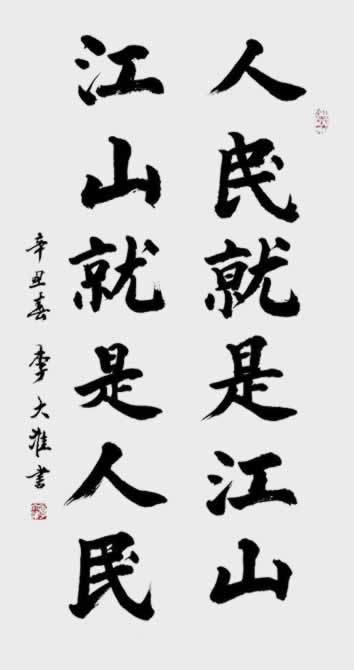 人民就是江山
江山就是人民
辛丑春 李大淮書